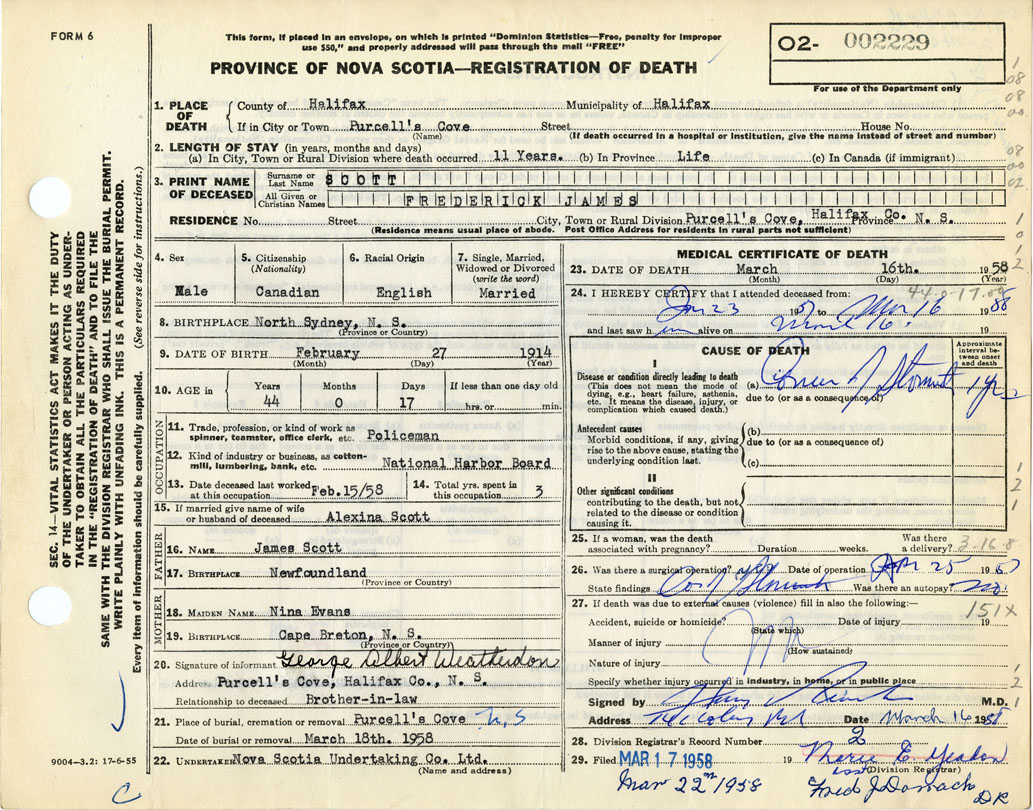 FORM 6
This form, if placed in an envelope, on which is printed "Dominion Statistics—Free, penalty for improper
use $50," and properly addressed will pass through the mail "FREE"
PROVINCE OF NOVA SCOTIA—REGISTRATION OF DEATH
02- 002229
For use of the Department only
1. PLACE OF DEATH
County of Halifax Municipality of Halifax
If in City or Town Purcell's Cove Street House No.
(Name) (If death occurred in a hospital or institution, give the name instead of street and number)
2. LENGTH OF STAY (in years, months and days)
(a) In City, Town or Rural Division where death occurred 11 Years. (b) In Province Life (c) In Canada (if immigrant)
3. PRINT NAME OF DECEASED
Surname or Last Name SCOTT
All Given or Christian Names FREDERICK JAMES
RESIDENCE No. Street City, Town or Rural Division Purcell's Cove, Halifax Co. Province N. S.
(Residence means usual place of abode. Post Office Address for residents in rural parts not sufficient)
4. Sex Male
5. Citizenship (Nationality) Canadian
6. Racial Origin English
7. Single, Married, Widowed or Divorced (write the word) Married
8. BIRTHPLACE North Sydney, N. S.
(Province or Country)
9. DATE OF BIRTH February 27 1914
(Month) (Day) (Year)
10. AGE in Years Months Days If less than one day old
44 0 17 hrs. or min.
OCCUPATION
11. Trade, profession, or kind of work as
spinner, teamster, office clerk, etc. Policeman
12. Kind of industry or business, as cotton-
mill, lumbering, bank, etc. National Harbor Board
13. Date deceased last worked at this occupation Feb.15/58
14. Total yrs. spent in this occupation 3
15. If married give name of wife
or husband of deceased Alexina Scott
FATHER
16. NAME James Scott
17. BIRTHPLACE Newfoundland
(Province or Country)
MOTHER
18. MAIDEN NAME Nina Evans
19. BIRTHPLACE Cape Breton, N. S.
(Province or Country)
20. Signature of informant George Albert Weatherdon
Address Purcell's Cove, Halifax Co., N. S.
Relationship to deceased Brother-in-law
21. Place of burial, cremation or removal Purcell's Cove N,S
Date of burial or removal March 18th. 1958
22. UNDERTAKER Nova Scotia Undertaking Co. Ltd.
(Name and address)
MEDICAL CERTIFICATE OF DEATH
23. DATE OF DEATH March 16th. 1958
(Month) (Day) (Year)
44-0-17.
24. I HEREBY CERTIFY that I attended deceased from:
Jan 23 1957 to Mar 16 1958
and last saw him alive on March 16. 19
CAUSE OF DEATH
Approximate interval between onset and death
I
Disease or condition directly leading to death
(This does not mean the mode of
dying, e.g., heart failure, asthenia,
etc. It means the disease, injury, or
complication which caused death.)
(a) Cancer of Stomach 1 yr
due to (or as a consequence of)
Antecedent causes
Morbid conditions, if any, giving
rise to the above cause, stating the
underlying condition last.
(b)
due to (or as a consequence of)
(c)
II
Other significant conditions
contributing to the death, but not
related to the disease or condition
causing it.
25. If a woman, was the death
associated with pregnancy? Duration weeks. Was there a delivery?
3-16-8
26. Was there a surgical operation? Date of operation Apr 25 19
State findings Ca of Stomach Was there an autopsy? no
27. If death was due to external causes (violence) fill in also the following:—
151X
Accident, suicide or homicide? Date of injury 19
(State which)
Manner of injury
(How sustained)
Nature of injury
Specify whether injury occurred in industry, in home, or in public place
Signed by M.D.
Address Date March 16 1958
28. Division Registrar's Record Number 2
29. Filed MAR 17 1958 19 Marie E. Yeadon
(Division Registrar)
Mar 22nd 1958 Fred J Darrach
DR
9004-3.2: 17-6-55
C
SEC. 14—VITAL STATISTICS ACT MAKES IT THE DUTY
OF THE UNDERTAKER OR PERSON ACTING AS UNDER-
TAKER TO OBTAIN ALL THE PARTICULARS REQUIRED
IN THE "REGISTRATION OF DEATH" AND TO FILE THE
SAME WITH THE DIVISION REGISTRAR WHO SHALL ISSUE THE BURIAL PERMIT.
WRITE PLAINLY WITH UNFADING INK. THIS IS A PERMANENT RECORD.
Every item of information should be carefully supplied. (See reverse side for instructions.)